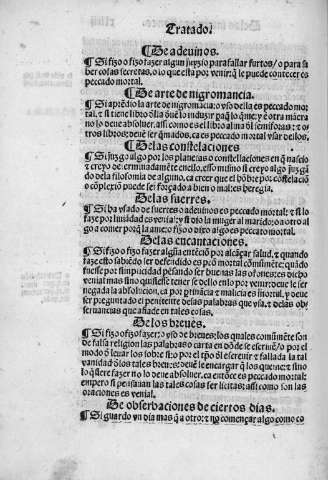 Tratado.
¶ De adeuinos.
¶ Si fizo o fizo fazer algun juyzio para fallar furtos/o para sa
ber cosas secretas, o lo que esta por venir:q̃ le puede contecer es
peccado mortal.
¶ De arte de nigromancia.
¶ Si aprẽdio la arte de nigromãcia: o vso della es peccado mor
tal, z si tiene libro della
no lo deue absoluer, assi como es el libro
tros libros: deuẽ ser q̃mados, ca es peccado mortal vsar dellos.
¶ Delas constelaciones
¶ Si juzgo algo por los planetas o constelaciones en q̃ nascio
z creyo de
do dela filosomia de alguno, ca creer que el hõbre por cõstelaciõ
o cõplexiõ puede ser forçado a bien o mal: es heregia.
Delas suertes.
¶ Si ha vsado de suertes o adeuinos es peccado mortal: z si lo
faze por liuiãdad es venial: z si dio la muger al marido: o a otro al
go a comer porq̃ la ame: o fizo o dixo algo es peccato mortal.
Delas encantaciones.
¶ Si fizo o fizo fazer algũa por alcãçar salud, z quando
faze esto sabiẽdo ser defendido es pcõ mortal comũmẽte: quãdo
fuesse por simplicidad pẽsando ser buenas las oraciones: es dicho
venial mas sino quisiesse tener se dello enlo por venir: deue le ser
negada la absoluciõ, ca por es mortal, y deue
ser preguntado el penitente delas palabras que vsa, z delas obs
seruancias que añade en tales cosas.
Delos breues.
¶ Si fizo o fizo fazer: o vso de breues: los quales comũmẽte son
de falsa religion las palabras o carta en dõde se escriuẽ/o por el
modo d̃ leuar los sobre si: o por el tp̃o d̃l escreuir z fallada la tal
vanidad dlos tales: deue le encargar q̃ los queme: z sino
lo q̃siere fazer no lo deue absoluer, ca entõce es peccado mortal:
empero si pensauan las tales cosas ser licitas: assi como son las
oraciones es venial.
¶ De obseruaciones de ciertos dias.
¶ Si guardo vn dia mas q̃ a otro: z no començar algo como co